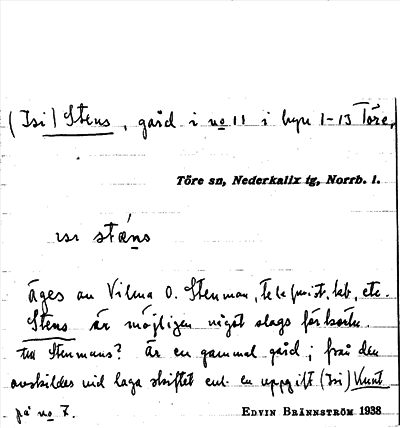 (Isi) Stens, gård i no 11 i byn 1-13 Töre,
Töre sn, Nederkalix tg, Norrb. l.
stæns
äges av Vilma O. Stenman, etc.
Stens är möjligen något slags förkortn.
till Stenmans? Är en gammal gård; från den
avskildes vid laga skiftet enl. en uppgift (Isi) Kunt
på no 7.
EDVIN BRÄNNSTRÖM 1938